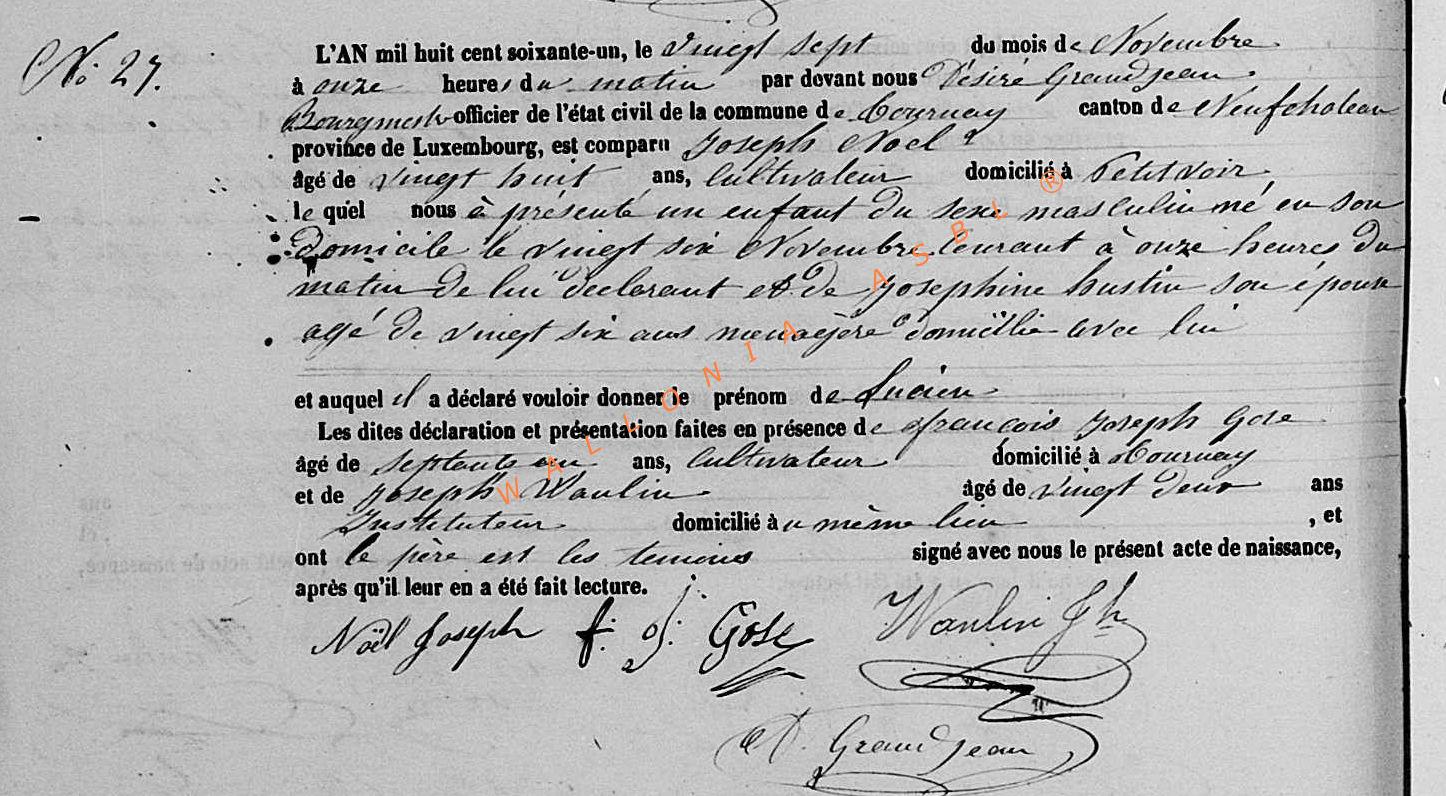 No 27.
L'AN mil huit cent soixante-un, le vingt sept du mois de Novembre
à onze heures du matin par devant nous Désiré Grandjean
Bourgmestre officier de l'état civil de la commune de Tournay canton de Neufchateau
province de Luxembourg, est comparu Joseph Noel
âgé de vingt huit ans, Cultivateur domicilié à Petitvoir
le quel nous à présenté un enfant du sexe masculin né en son
domicile le vingt six Novembre courant à onze heures du
matin de lui déclarant et de Josephine hustin son épouse
agé de vingt six ans menagère domicilié avec lui
et auquel il a déclaré vouloir donner le prénom de Lucien
Les dites déclaration et présentation faites en présence de françois Joseph Gose
âgé de septante un ans, Cultivateur domicilié à Tournay
et de Joseph Waulin âgé de vingt deux ans
Instituteur domicilié àu même lieu , et
ont le père est les temoins signé avec nous le présent acte de naissance,
après qu'il leur en a été fait lecture.
Noël Joseph f. j. Gose Waulin Jh
D. Grandjean
WALLONIA ASBL ®